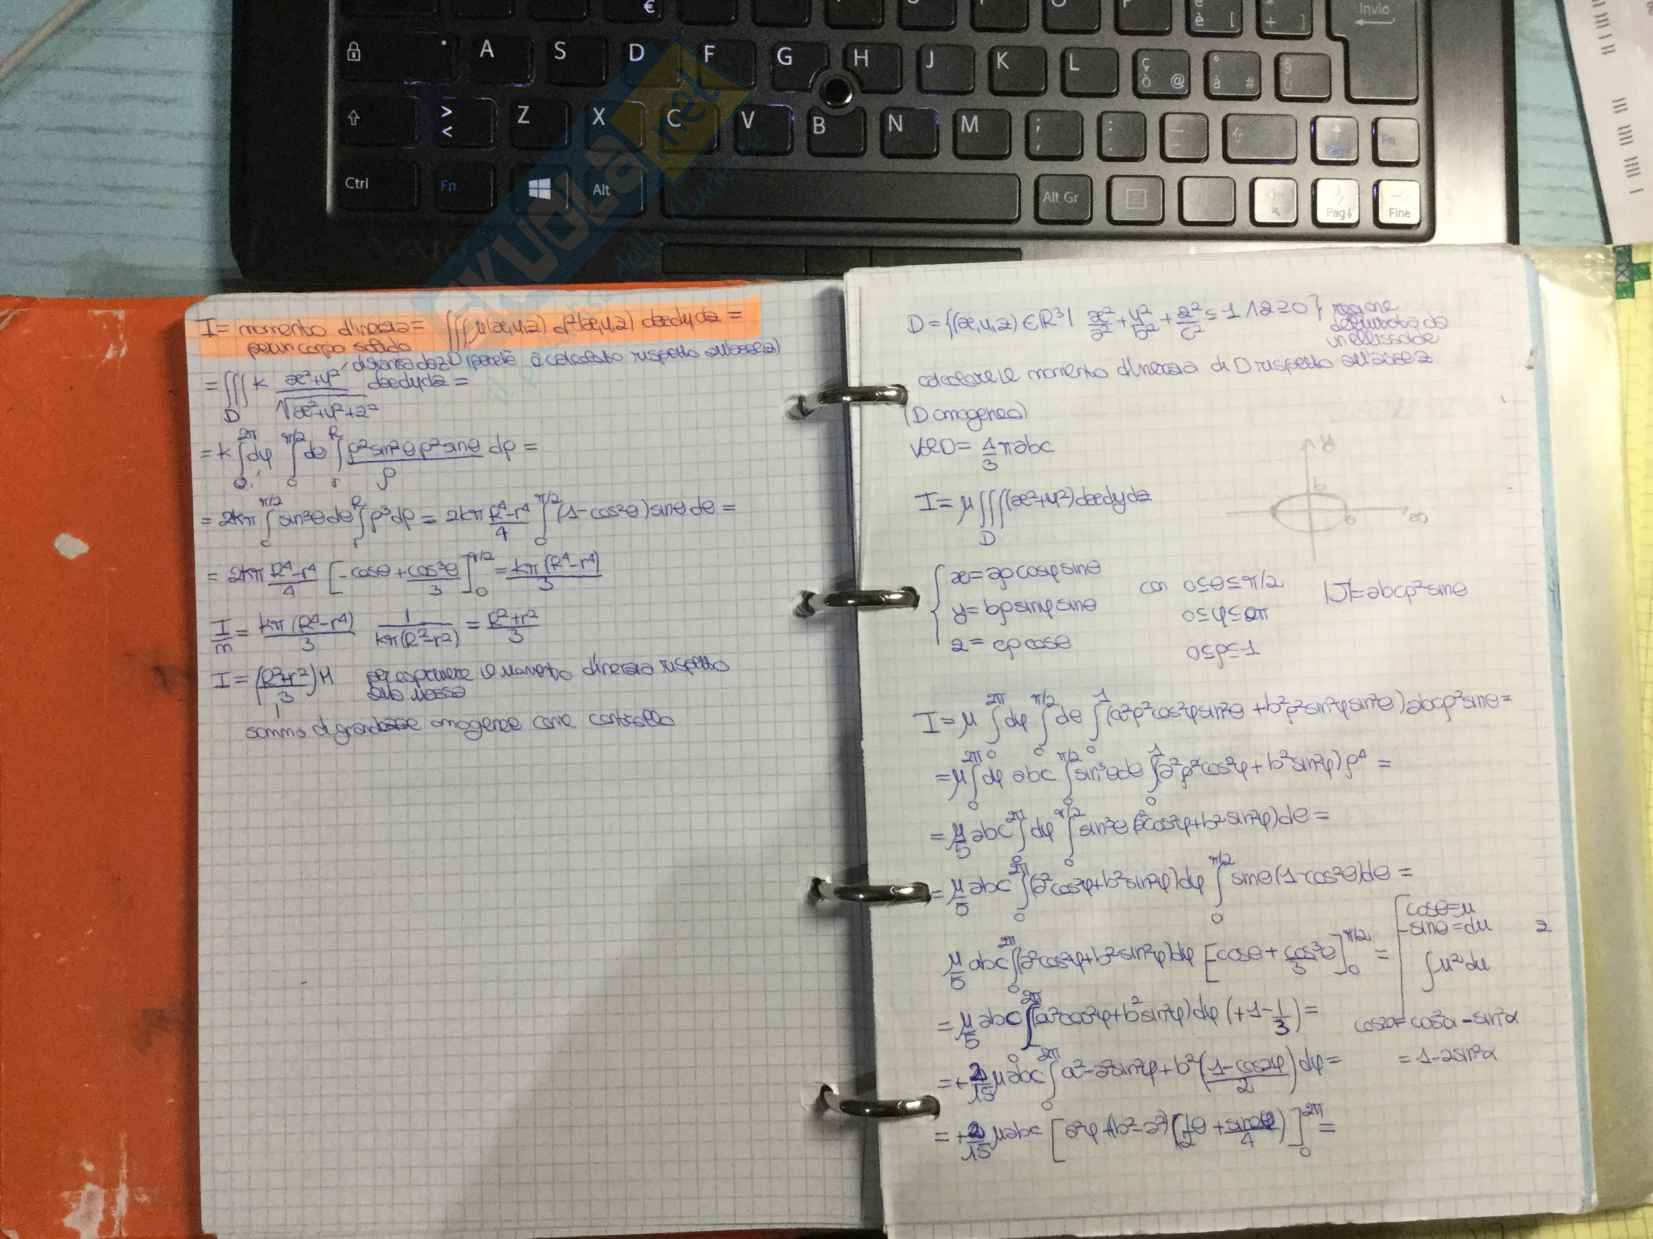 €
Invio
A S D F G H J K L ç ò @ ° à # §
> < Z X C V B N M ; , : . _ -
Ctrl Fn Alt Alt Gr Pag↓ Fine
SKUOLA.net
I = momento d'inerzia = ∭ μ(x,y,z) d²(x,y,z) dxdydz =
per un corpo solido
distanza da z (perché è calcolato rispetto all'asse z)
= ∭_D k (x²+y²)/√(x²+y²+z²) dxdydz =
= k ∫_0^{2π} dφ ∫_0^{π/2} dθ ∫_r^R (ρ²sin²θ ρ²sinθ)/ρ dρ =
= 2kπ ∫_0^{π/2} sin³θ dθ ∫_r^R ρ³dρ = 2kπ (R⁴-r⁴)/4 ∫_0^{π/2} (1-cos²θ) sinθ dθ =
= 2kπ (R⁴-r⁴)/4 [-cosθ + cos³θ/3]_0^{π/2} = kπ(R⁴-r⁴)/3
I/m = kπ(R⁴-r⁴)/3 1/(kπ(R²-r²)) = (R²+r²)/3
I = ((R²+r²)/3) M per esprimere il momento d'inerzia rispetto
alla massa
somma di grandezze omogenee come controllo
D = {(x,y,z) ∈ R³ | x²/a² + y²/b² + z²/c² ≤ 1 ∧ z ≥ 0} regione
delimitata da
un ellissoide
calcolare il momento d'inerzia di D rispetto all'asse z
(D omogeneo)
Vol D = 4/3 πabc
y
b
a
x
I = μ ∭_D (x²+y²) dxdydz
{ x = aρcosφsinθ con 0≤θ≤π/2 |J| = abcρ²sinθ
y = bρsinφsinθ 0≤φ≤2π
z = cρcosθ 0≤ρ≤1
I = μ ∫_0^{2π} dφ ∫_0^{π/2} dθ ∫_0^1 (a²ρ²cos²φsin²θ + b²ρ²sin²φsin²θ) abcρ²sinθ =
= μ ∫_0^{2π} dφ abc ∫_0^{π/2} sin³θdθ ∫_0^1 a²ρ²cos²φ + b²sin²φ) ρ⁴ =
= μ/5 abc ∫_0^{2π} dφ ∫_0^{π/2} sin³θ (a²cos²φ+b²sin²φ) dθ =
= μ/5 abc ∫_0^{2π} (a²cos²φ+b²sin²φ) dφ ∫_0^{π/2} sinθ (1-cos²θ) dθ =
cosθ = u
-sinθ = du 2
∫u²du
μ/5 abc ∫_0^{2π} (a²cos²φ+b²sin²φ) dφ [cosθ + cos³θ/3]_0^{π/2} =
= μ/5 abc ∫_0^{2π} (a²cos²φ+b²sin²φ) dφ (+1-1/3) =
cos2α = cos²α - sin²α
= 1-2sin²α
= +2/15 μabc ∫_0^{2π} a²-a²sin²φ+b² ((1-cos2φ)/2) dφ =
= +2/15 μabc [a²φ + (b²-a²) (1/2 θ + sin2φ/4)]_0^{2π} =